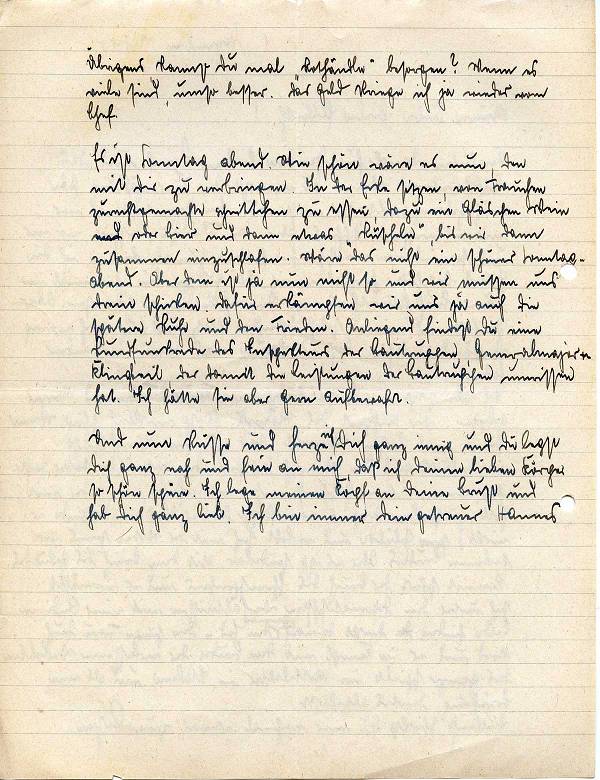 Übrigens kannst Du mal "Rothändle" besorgen? Wenn es
viele sind, umso besser. Das Geld kriege ich ja wieder vom
Chef.
Es ist Sonntag abend. Wie schön wäre es nun, den
mit Dir zu verbringen. In der Ecke sitzen, von Frauchen
zurechtgemachte Schnittchen zu essen, dazu ein Gläschen Wein
oder Bier und dann etwas "kuscheln", bis wir dann
zusammen einzuschlafen. Wäre das nicht ein schöner Sonntag-
abend. Aber dem ist ja nun nicht so und wir müssen uns
darin schicken. Dafür erkämpfen wir uns ja auch die
spätere Ruhe und den Frieden. Anliegend findest Du eine
Rundfunkrede des Inspekteurs der Bautruppen, Generalmajor
der damit die Leistungen der Bautruppen umrissen
hat. Ich hätte sie aber gern aufbewahrt.
Und nun küsse und herze ich Dich ganz innig und Du legst
Dich ganz nah und fein an mich, daß ich Deinen lieben Körper
so schön spüre. Ich lege meinen Kopf an Deine Brust und
hab Dich ganz lieb. Ich bin immer Dein getreuer Hannes